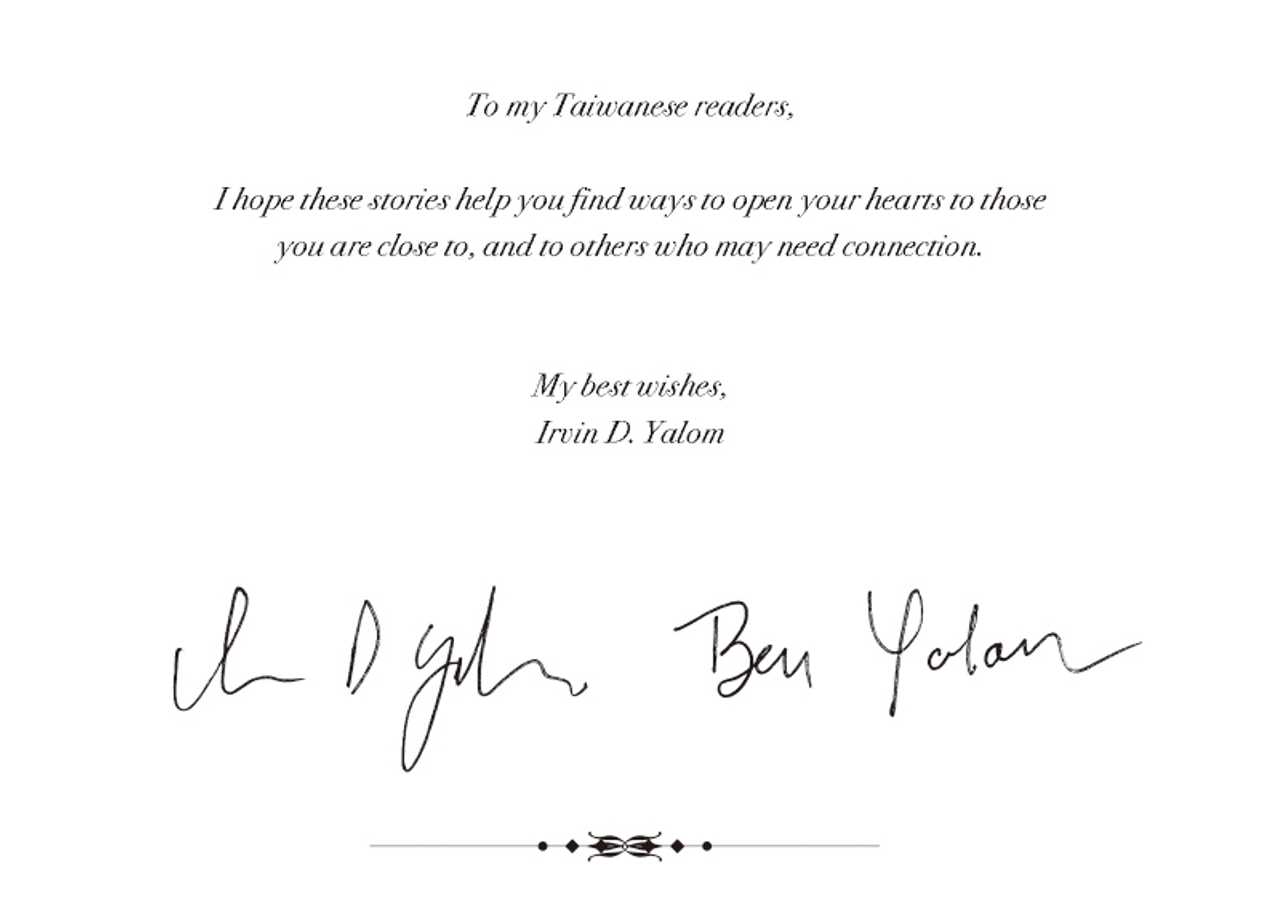 To my Taiwanese readers,
I hope these stories help you find ways to open your hearts to those
you are close to, and to others who may need connection.
My best wishes,
Irvin D. Yalom
Irvin D Yalom Ben Yalom